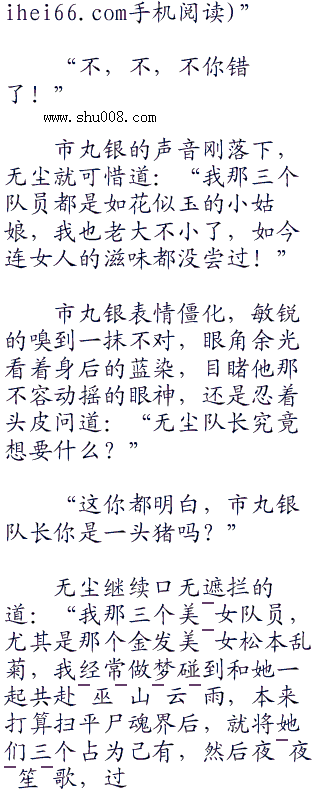 ihei66.com手机阅读)”
“不，不，不你错
了！”
www.shu008.com
市丸银的声音刚落下，
无尘就可惜道：“我那三个
队员都是如花似玉的小姑
娘，我也老大不小了，如今
连女人的滋味都没尝过！”
市丸银表情僵化，敏锐
的嗅到一抹不对，眼角余光
看着身后的蓝染，目睹他那
不容动摇的眼神，还是忍着
头皮问道：“无尘队长究竟
想要什么？”
“这你都明白，市丸银
队长你是一头猪吗？”
无尘继续口无遮拦的
道：“我那三个美¯女队员，
尤其是那个金发美¯女松本乱
菊，我经常做梦碰到和她一
起共赴¯巫¯山¯云¯雨，本来
打算扫平尸魂界后，就将她
们三个占为己有，然后夜¯夜
¯笙¯歌，过